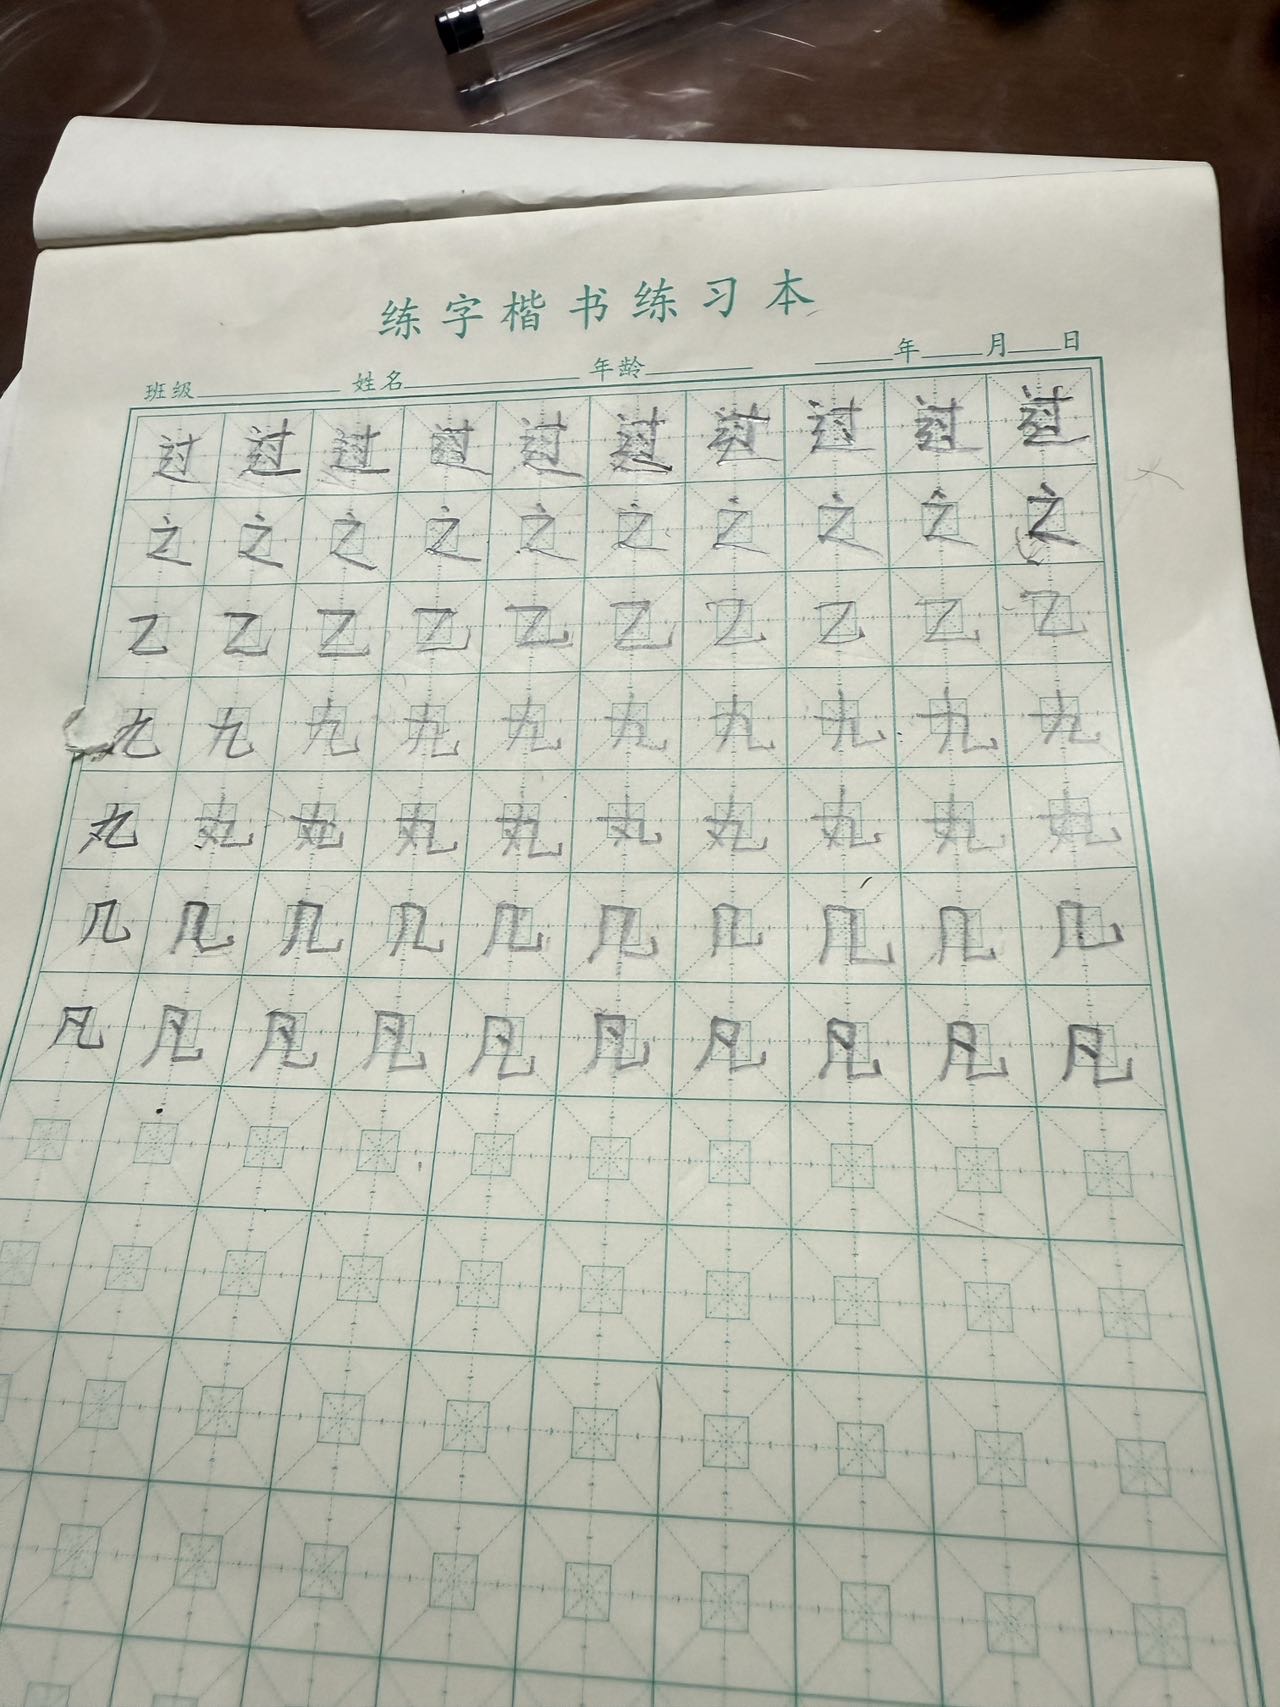 练字楷书练习本
班级 姓名 年龄 年 月 日
过过过过过过过过过过
之之之之之之之之之之
乙乙乙乙乙乙乙乙乙乙
九九九九九九九九九九
丸丸丸丸丸丸丸丸丸丸
几几几几几几几几几几
凡凡凡凡凡凡凡凡凡凡